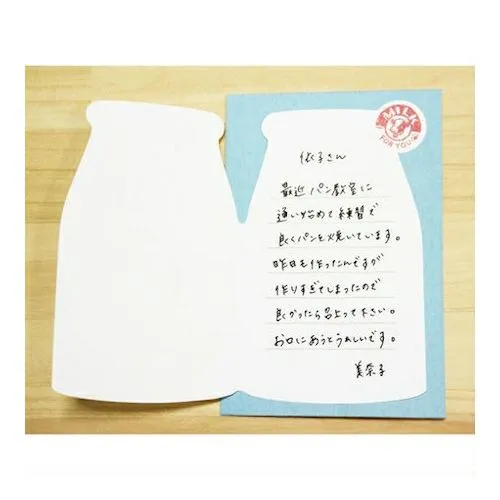 MILK
FOR YOU
依子さん
最近パン教室に
通い始めて練習で
良くパンを焼いています。
昨日も作ったんですが
作りすぎてしまったので
良かったら召上って下さい。
お口にあうとうれしいです。
美奈子